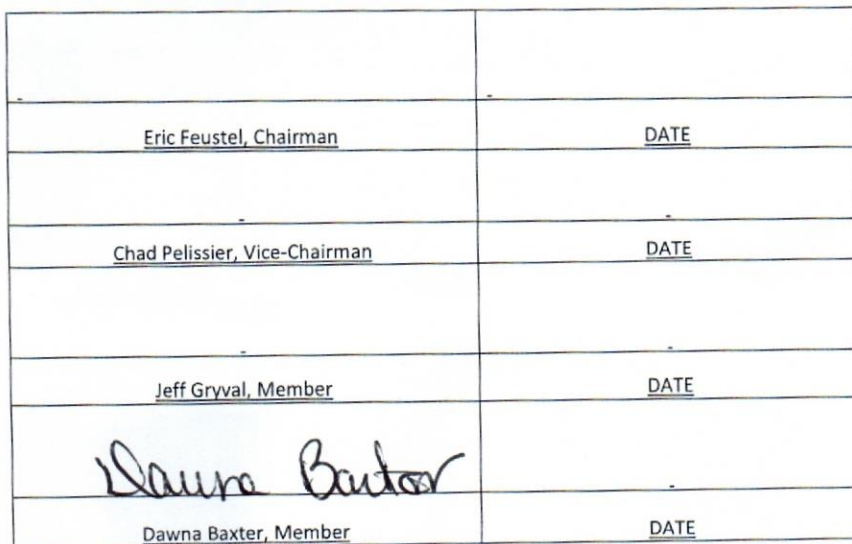 Eric Feustel, Chairman DATE
Chad Pelissier, Vice-Chairman DATE
Jeff Gryval, Member DATE
Dawna Baxter
Dawna Baxter, Member DATE